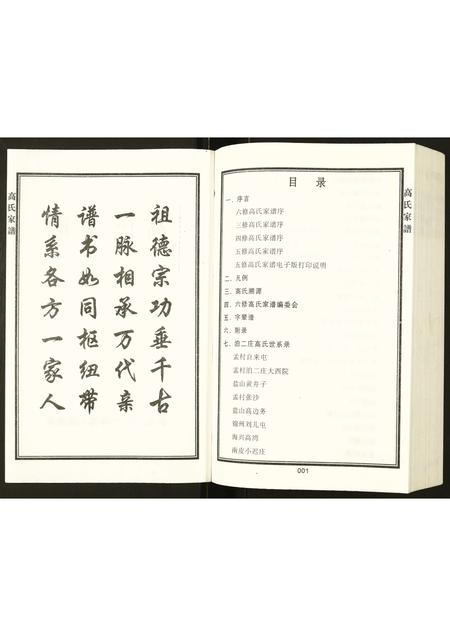 高氏家譜
祖德宗功垂千古
一脉相承万代亲
谱书如同枢纽带
情系各方一家人
目 录
一、序言
六修高氏家谱序
三修高氏家谱序
四修高氏家谱序
五修高氏家谱序
五修高氏家谱电子版打印说明
二、凡例
三、高氏溯源
四、六修高氏家谱编委会
五、字辈谱
六、附录
七、泊二庄高氏世系录
孟村自来屯
孟村泊二庄大西院
盐山黄舟子
孟村张沙
盐山高边务
锦州刘儿屯
海兴高湾
南皮小迟庄
001
高氏家譜